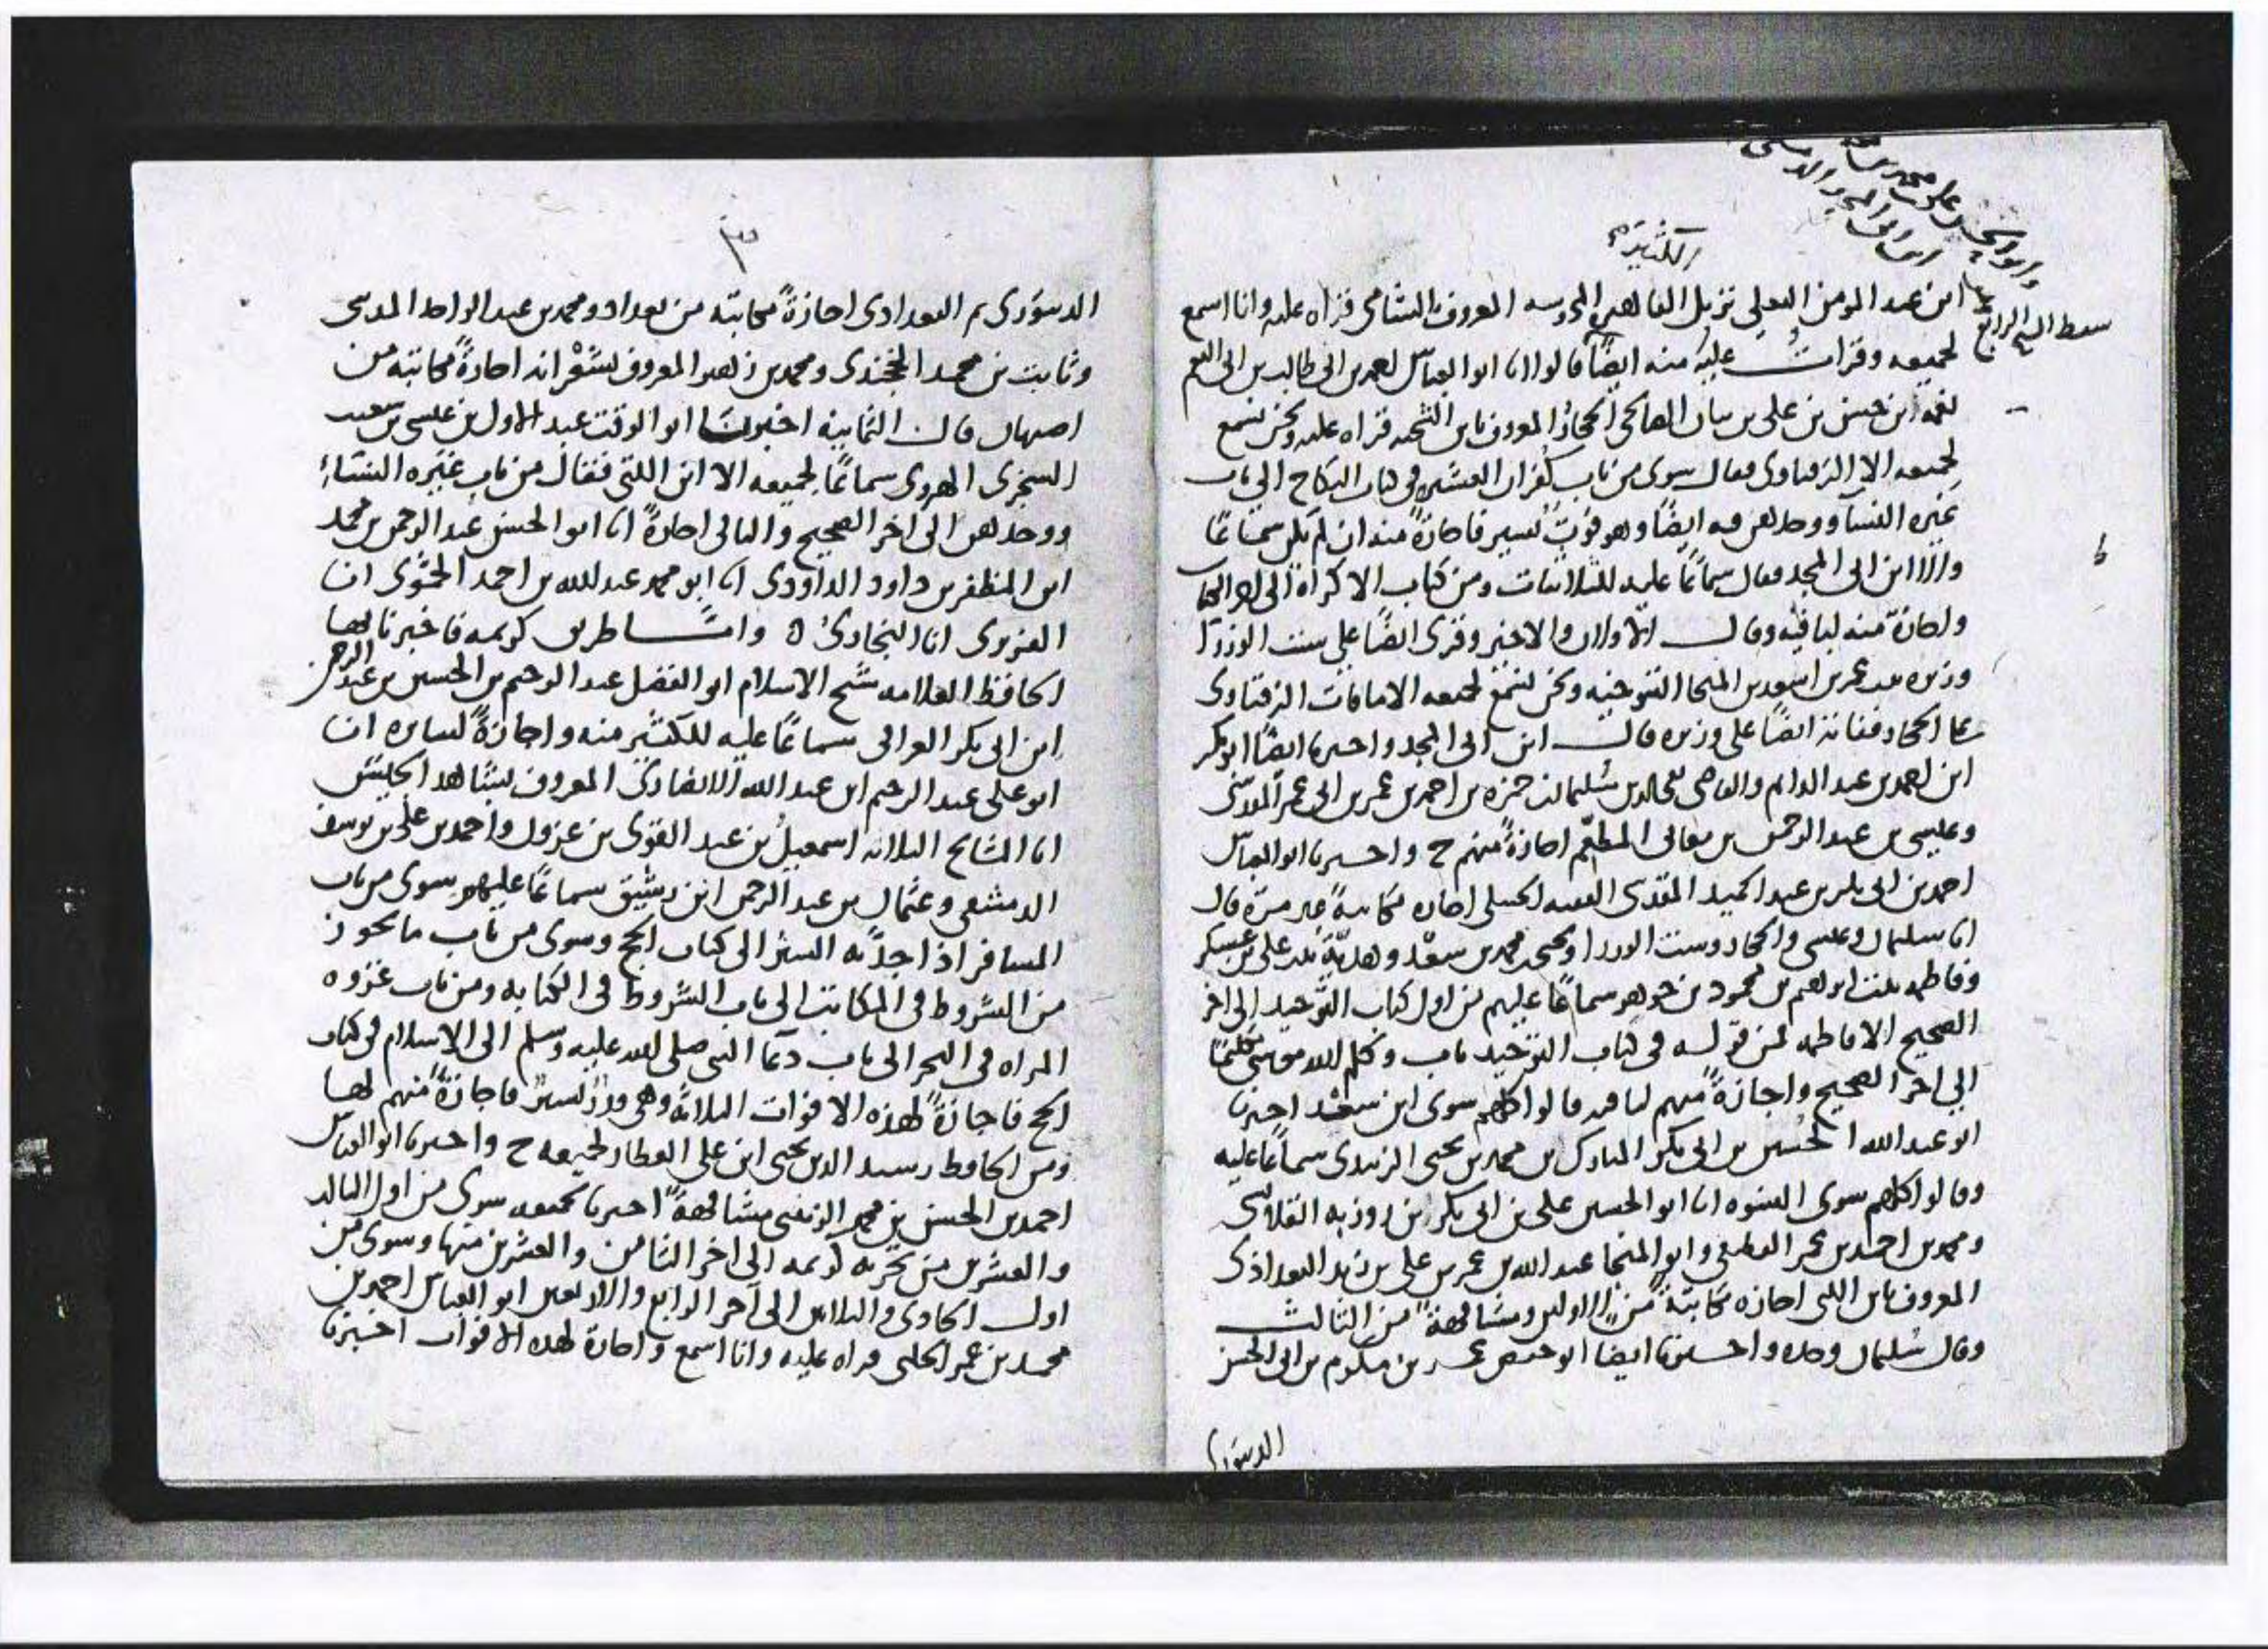 وابو الحسن علي بن محمد بن
ابن ابي المجد الدمشقي
الكثيرة
سقط الشيخ الرابع
ابن عبد المومن البعلي نزيل القاهرة المعروف بالشامي قراه عليه وانا اسمع
لجميعه وقرات عليه منه ايضًا قالوا انا ابو العباس احمد بن ابي طالب بن ابي النعم
نعمة ابن حسن بن علي بن بيان الصالحي الحجار المعروف بابن الشحنه قراه عليه ونحن نسمع
لجميعه الا الزفتاوي فقال سوى من باب كفران العشير في كتاب النكاح الى باب
غيره النسآ ووجدهن فيه ايضًا وهو فوت يسير فاجازةً منه ان لم يكن سماعًا
والا ابن ابي المجد فقال سماعًا عليه للثلاثيات ومن كتاب الاكراه الى اخر الكتاب
واجازة منه لباقيه وقال الاولان والاخير وقرى ايضًا على ست الوزرا
وزيره بنت عمر بن اسعد بن المنجا التنوخيه ونحن نسمع لجميعه الا ما فات الزفتاوي
على الحجار ففاته ايضًا على وزيره قال ابن ابي المجد واخبرنا ايضًا ابو بكر
ابن احمد بن عبد الدايم والقاضي سليمان بن حمزه بن احمد بن عمر بن ابي عمر المقدسي
وعيسى بن عبد الرحمن بن معالي المطعم اجازةً منهم ح واخبرنا ابو العباس
احمد بن ابي بكر بن عبد الحميد المقدسي الفقيه الحنبلي اجازه مكاتبةً غير مرّة قال
انا سليمان وعيسى والحجار وست الوزرا ويحيى بن محمد بن سعد وهديّة بنت علي بن عسكر
وفاطمه بنت ابرهيم بن محمود بن جوهر سماعًا عليهم من اول كتاب التوحيد الى اخر
الصحيح الا فاطمه فمن قوله في كتاب التوحيد باب وكلم الله موسى تكليمًا
الى اخر الصحيح واجازةً منهم لباقيه قالوا كلهم سوى ابن سعد اخبرنا
ابو عبد الله الحسين بن ابي بكر المبارك بن محمد بن يحيى الزبيدي سماعًا عليه
وقالوا كلهم سوى النسوه انا ابو الحسن علي بن ابي بكر بن روزبه القلانسي
ومحمد بن احمد بن عمر القطيعي وابو المنجا عبد الله بن عمر بن علي بن زيد البغدادي
المعروف بابن اللتي اجازه مكاتبةً من الاولين ومشافهةً من الثالث
وقال سليمان وحده واخبرنا ايضا ابو حفص عمر بن مكرم بن ابي الحسن
الدينوري
٣
الدينوري ثم البغدادي اجازةً مكاتبه من بغداد ومحمد بن عبد الواحد المديني
وثابت بن محمد الخجندي ومحمد بن زهير المعروف بشعرانه اجازةً مكاتبه من
اصبهان قال الثمانية اخبرنا ابو الوقت عبد الاول بن عيسى بن شعيب
السجزي الهروي سماعًا لجميعه الا ابن اللتي فقال من باب غيره النساء
ووجدهن الى اخر الصحيح والباقي اجازةً انا ابو الحسن عبد الرحمن بن محمد
ابن المظفر بن داود الداودي انا ابو محمد عبد الله بن احمد الحمّوي انا
الفربري انا البخاري ه واما طريق كريمه فاخبرنا بها
الحافظ العلامه شيخ الاسلام ابو الفضل عبد الرحيم بن الحسين بن عبد الرحمن
ابن ابي بكر العراقي سماعًا عليه للكثير منه واجازةً لسايره انا
ابو علي عبد الرحيم ابن عبد الله الانصاري المعروف بشاهد الجيش
انا المشايخ الثلاثه اسمعيل بن عبد القوي بن عزون واحمد بن علي بن يوسف
الدمشقي وعثمان بن عبد الرحمن ابن رشيق سماعًا عليهم سوى من باب
المسافر اذا اجدّ به السير الى كتاب الحج وسوى من باب ما يجوز
من الشروط في المكاتب الى باب الشروط في الكتابه ومن باب غزوه
المراه في البحر الى باب دعا النبي صلى الله عليه وسلم الى الاسلام في كتاب
الحج فاجازةً لهذه الافوات الثلاثه فاجازةً منهم لها
ومن الحافظ رشيد الدين يحيى ابن علي العطار لجميعه ح واخبرنا ابو العباس
احمد بن الحسن بن محمد الزينبي مشافهةً اخبرنا بجميعه سوى من اول الثالث
والعشرين من تجزيه الى اخر الثامن والعشرين منها وسوى من
اول الحادي والثلاثين الى آخر الرابع والاربعين ابو العباس احمد بن
محمد بن عمر الحلبي قراه عليه وانا اسمع واجازة لهذه الافوات اخبرنا